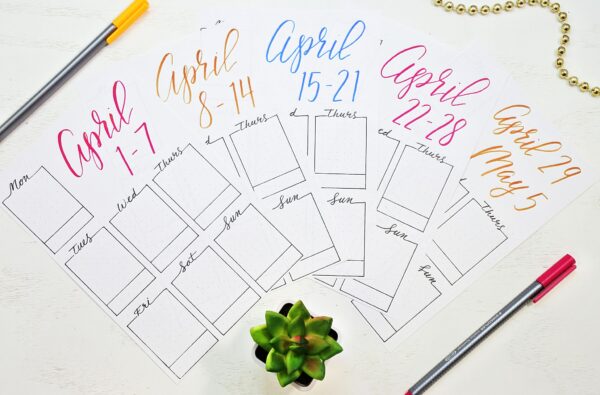 April
1-7
Mon
Tues
Wed
Thurs
Fri
Sat
Sun
April
8-14
d
Thurs
Sun
April
15-21
d
Thurs
Sun
April
22-28
ed
Thurs
Sun
April 29
May 5
Thurs
Sun